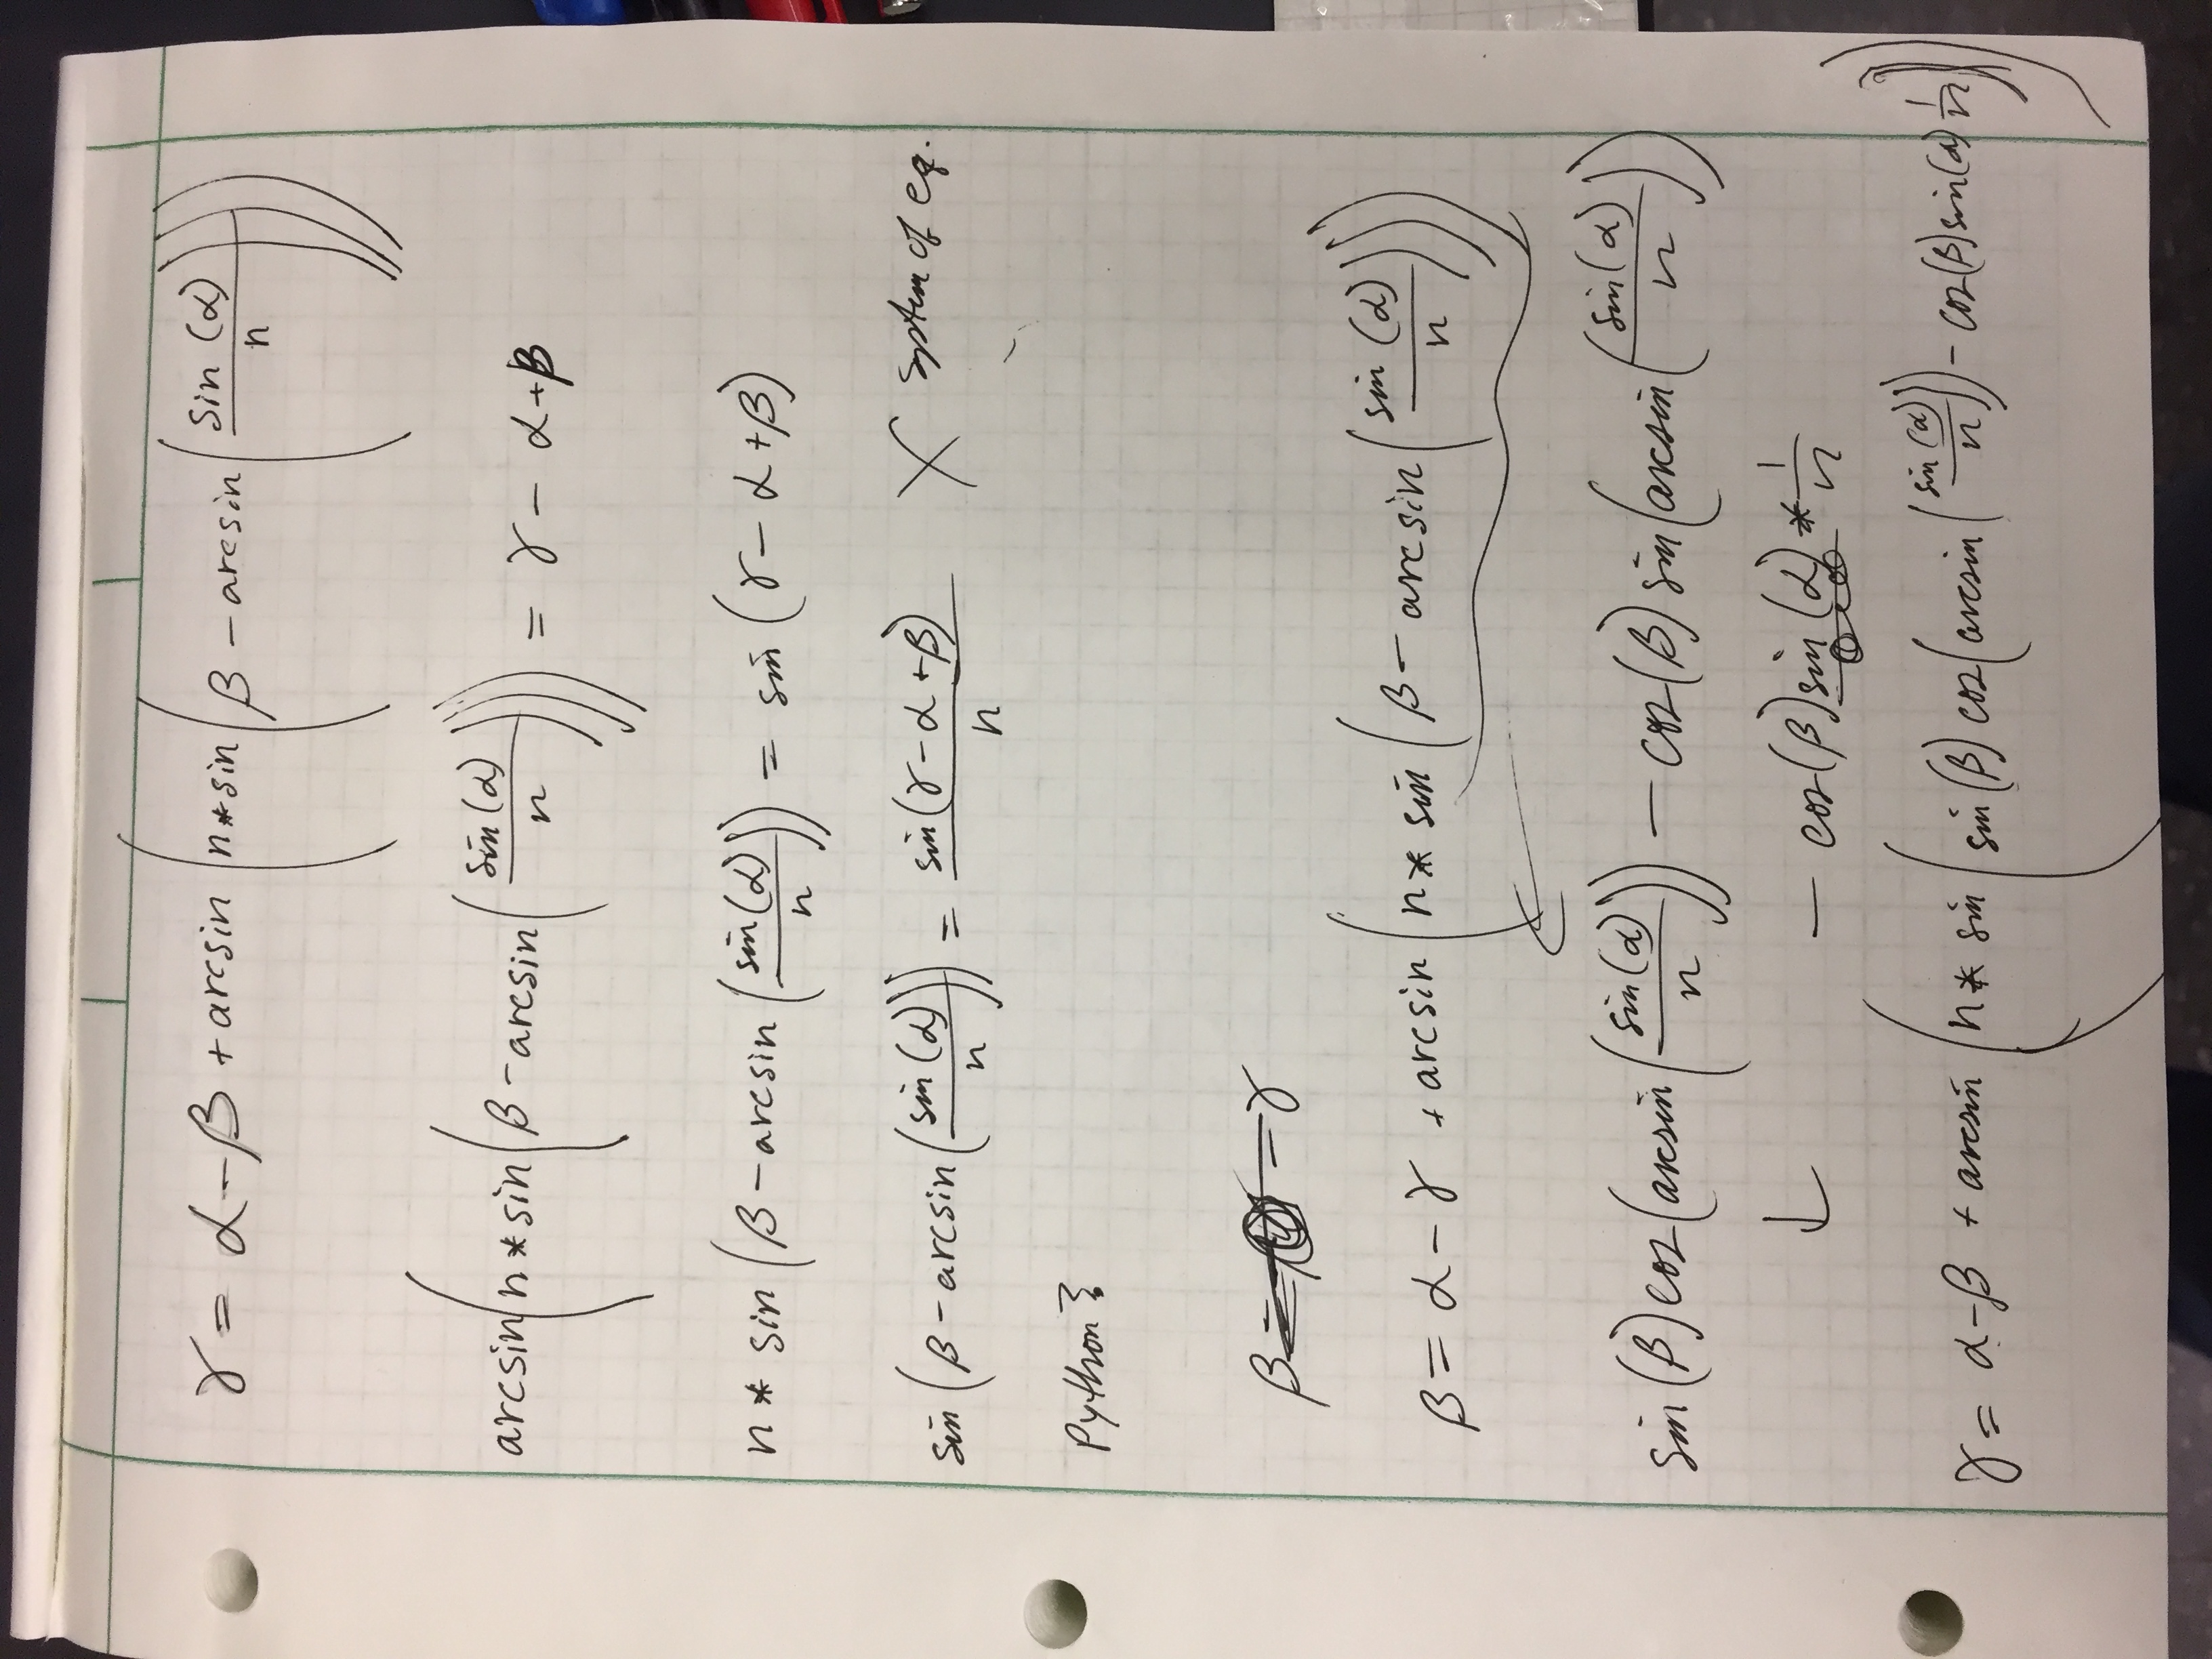 γ = α - β + arcsin (n * sin (β - arcsin (sin (α) / n)))
arcsin (n * sin (β - arcsin (sin (α) / n))) = γ - α + β
n * sin (β - arcsin (sin (α) / n)) = sin (γ - α + β)
sin (β - arcsin (sin (α) / n)) = sin (γ - α + β) / n X system of eq.
Python?
β = γ
β = α - γ + arcsin (n * sin (β - arcsin (sin (α) / n)))
sin (β) cos (arcsin (sin (α) / n)) - cos (β) sin (arcsin (sin (α) / n))
↓ - cos (β) sin (α) * 1/n
γ = α - β + arcsin (n * sin (sin (β) cos (arcsin (sin (α) / n)) - cos (β) sin (α) 1/n))